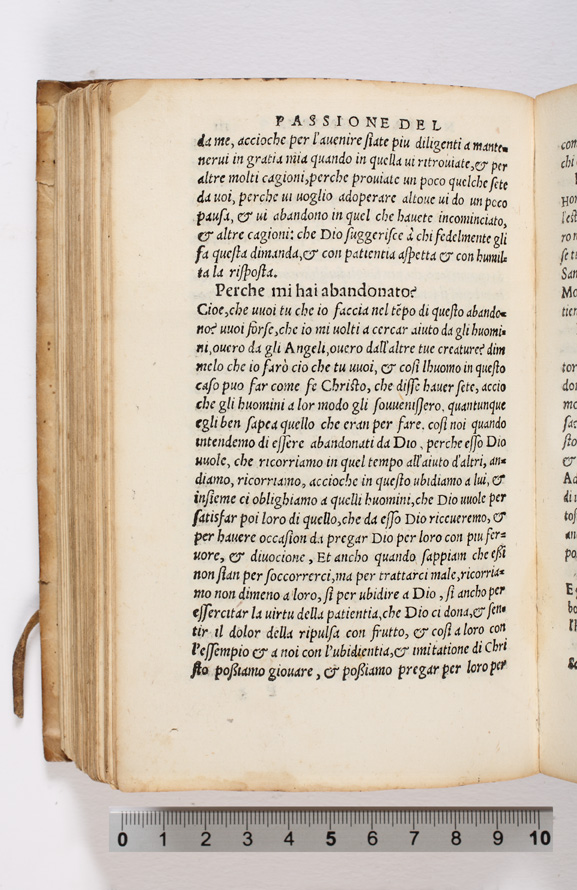 PASSIONE DEL
da me, accioche per l'auenire siate piu diligenti a mante-
nerui in gratia mia quando in quella ui ritrouiate, & per
altre molti cagioni, perche prouiate un poco quelche sete
da uoi, perche ui uoglio adoperare altoue ui do un poco
pausa, & ui abandono in quel che hauete incominciato,
& altre cagioni: che Dio suggerisce à chi fedelmente gli
fa questa dimanda, & con patientia aspetta & con humil-
ta la risposta.
Perche mi hai abandonato?
Cioe, che uuoi tu che io faccia nel tēpo di questo abando-
no? uuoi forse, che io mi uolti a cercar aiuto da gli huomi-
ni, ouero da gli Angeli, ouero dall'altre tue creature? dim
melo che io farò cio che tu uuoi, & così lhuomo in questo
caso puo far come fe Christo, che disse hauer sete, accio
che gli huomini a lor modo gli souuenissero, quantunque
egli ben sapea quello che eran per fare. così noi quando
intendemo di essere abandonati da Dio, perche esso Dio
uuole, che ricorriamo in quel tempo all'aiuto d'altri, an-
diamo, ricorriamo, accioche in questo ubidiamo a lui, &
insieme ci oblighiamo a quelli huomini, che Dio uuole per
satisfar poi loro di quello, che da esso Dio riceueremo, &
per hauere occasion da pregar Dio per loro con piu fer-
uore, & diuocione, Et ancho quando sappiam che eßi
non sian per soccorrerci, ma per trattarci male, ricorria-
mo non dimeno a loro, sì per ubidire a Dio, sì ancho per
essercitar la uirtu della patientia, che Dio ci dona, & sen-
tir il dolor della ripulsa con frutto, & così a loro con
l'essempio & a noi con l'ubidientia, & imitatione di Chri
sto poßiamo giouare, & poßiamo pregar per loro per
0 1 2 3 4 5 6 7 8 9 10